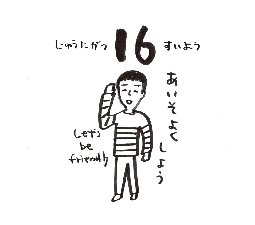 じゅうにがつ 16 すいよう
あいそよく
しよう
Let's
be
friendly